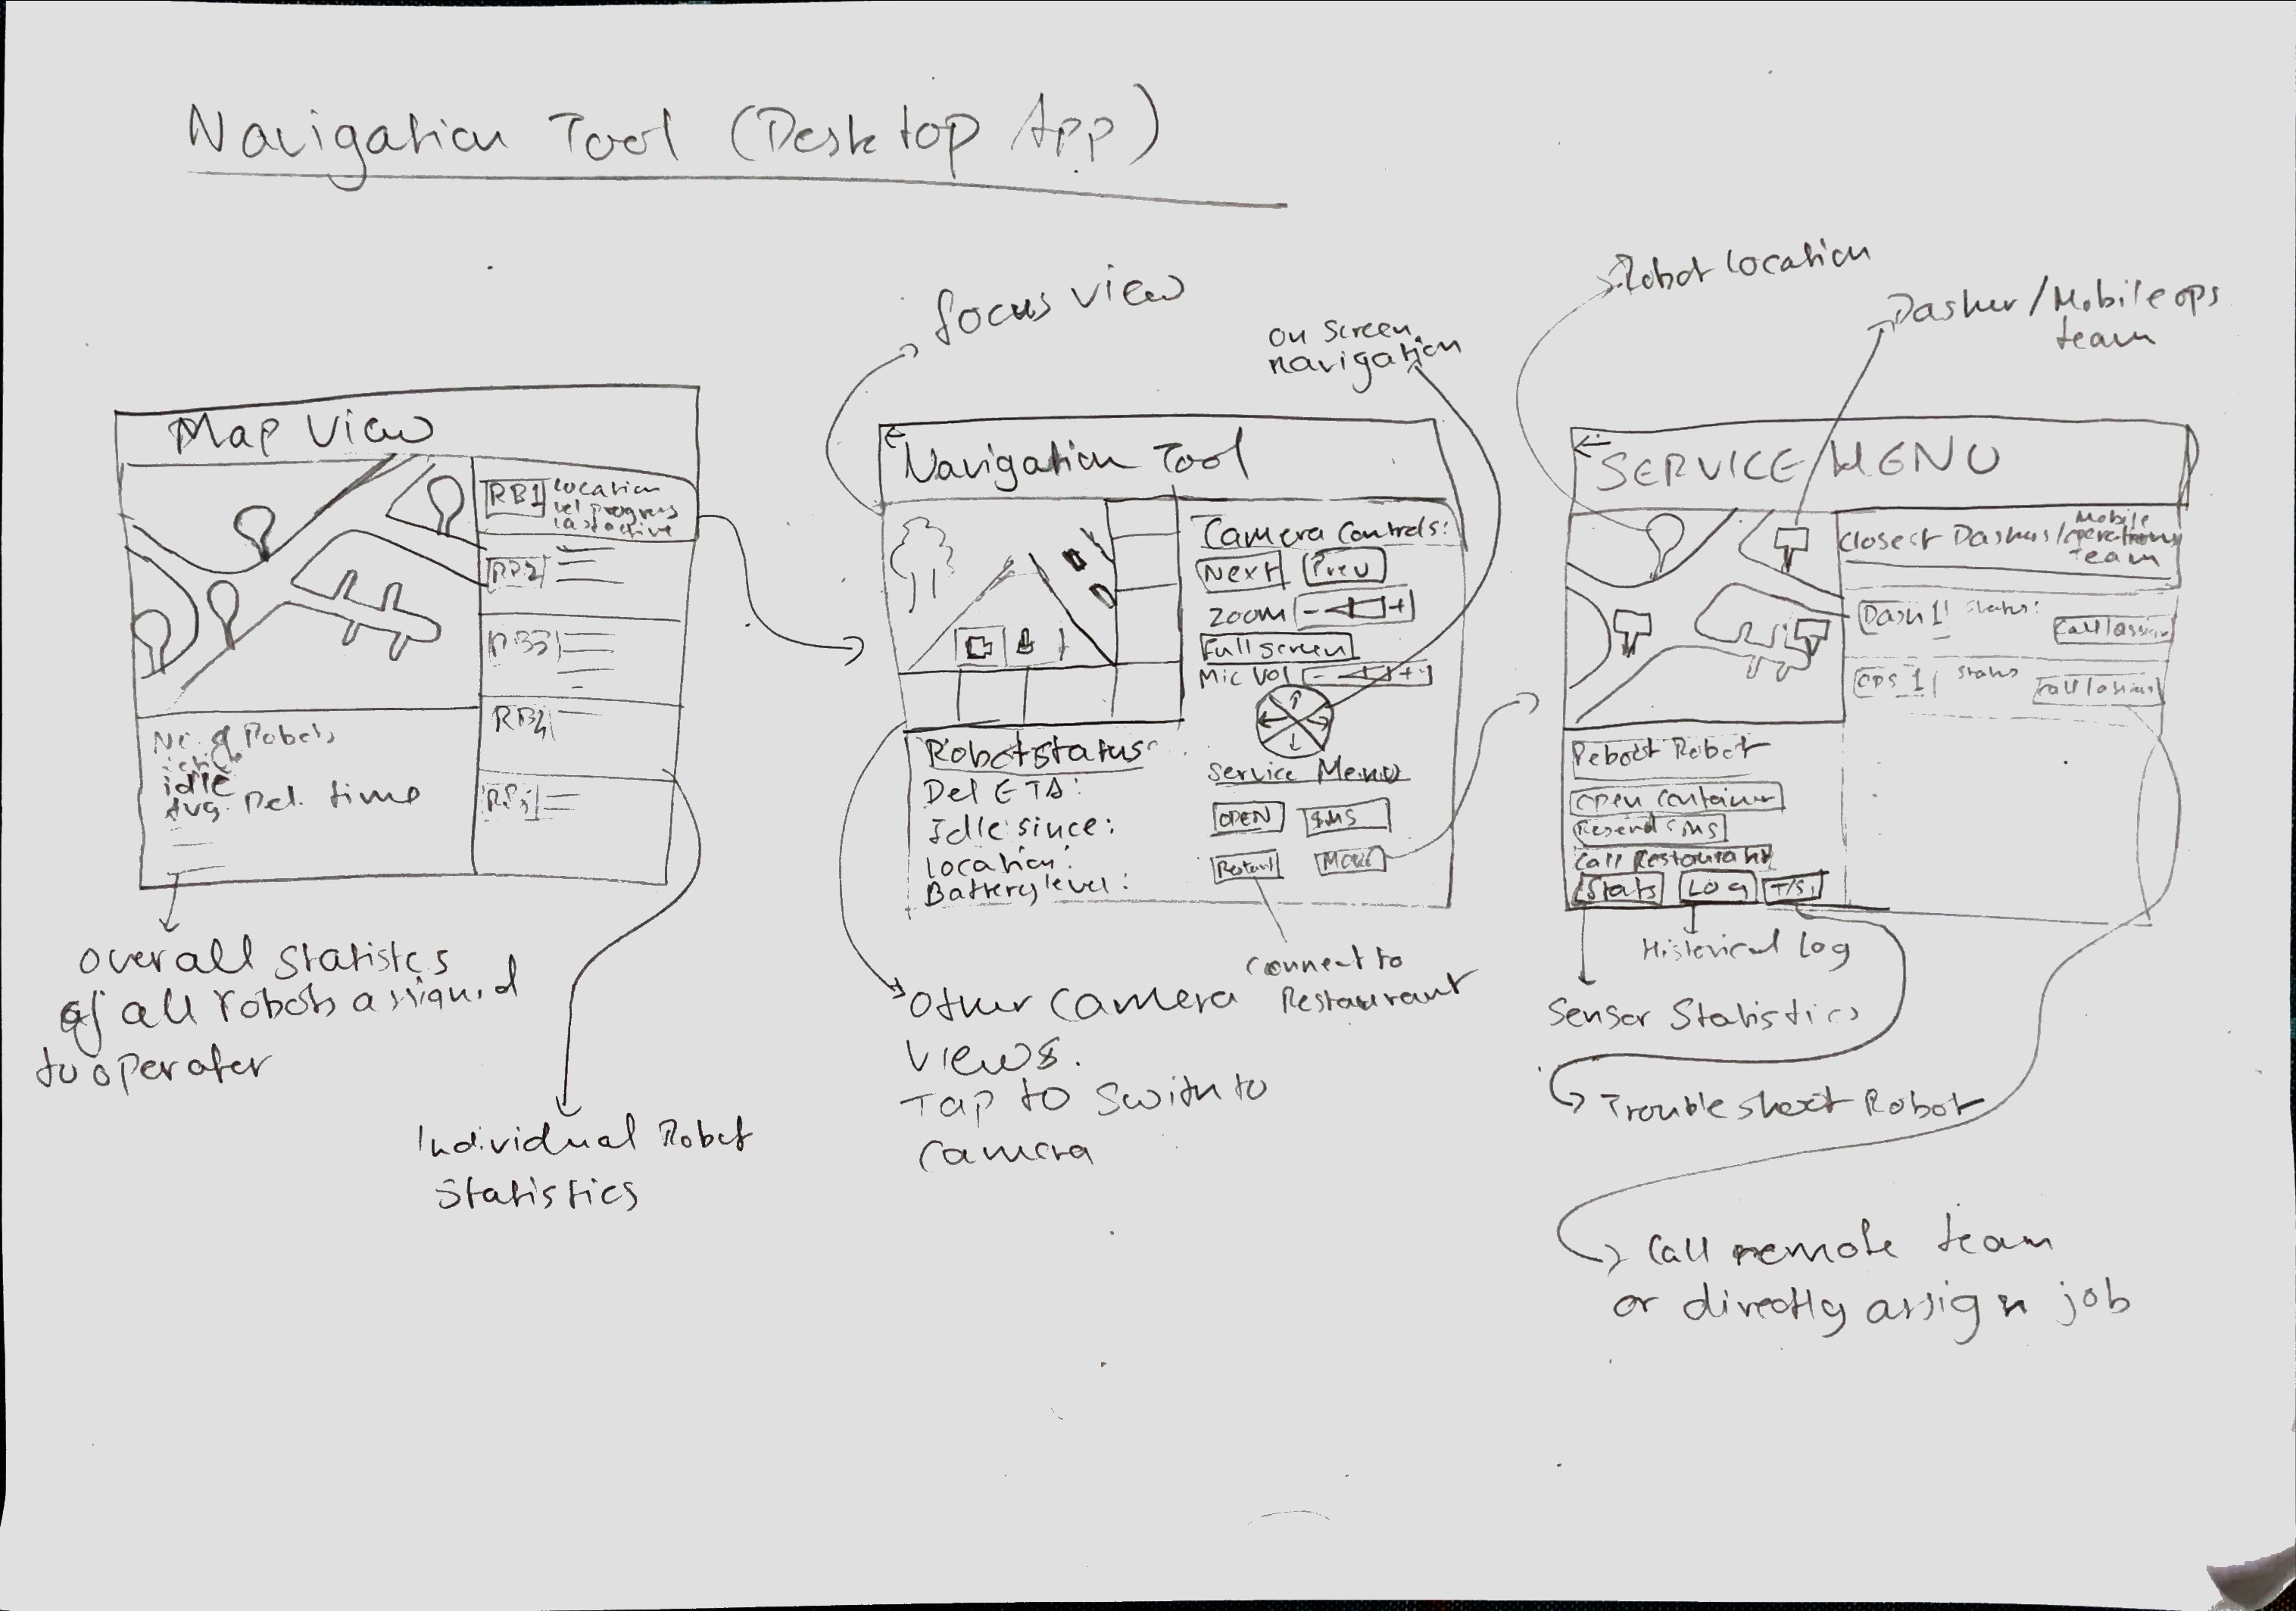 Navigation Tool (Desktop App)
Map View
RB1
Location
Del progress
last active
RB2
RB3
RB4
No. of Robots
idle
Avg. Del. time
overall statistcs
of all robots assigned
to operater
Individual Robot
Statistics
focus view
on screen
navigation
Navigation Tool
Camera Controls:
Next Prev
Zoom - +
Full screen
Mic Vol - +
Robot status
Del ETA:
Idle since:
Location:
Battery level:
Service Menu
OPEN SMS
Restau MORE
connect to
Restaurant
Other camera
views.
Tap to swith to
camera
Robot Location
Dasher/Mobile ops
team
SERVICE MENU
Closest Dashers/Mobile
operations
team
Dash 1 Status:
Call/assign
OPS 1 Status
Call/assign
Reboot Robot
Open Container
Resend SMS
Call Restaurant
Stats Log T/S
Historical Log
Sensor Statistics
Troubleshoot Robot
Call remote team
or directly assign job